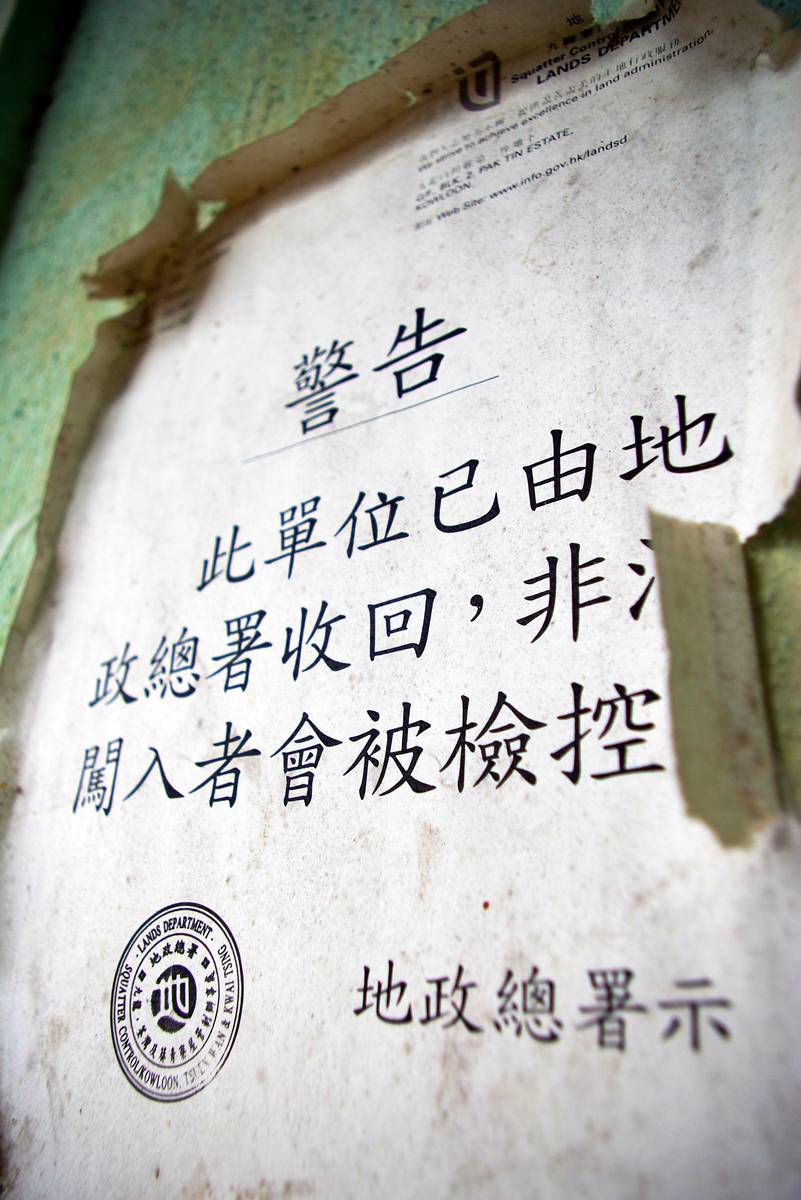 Squatter Control
LANDS DEPARTME
We strive to achieve excellence in land administration
G/F, BLK 2, PAK TIN ESTATE,
KOWLOON.
網址 Web Site: www.info.gov.hk/landsd
警告
此單位已由地
政總署收回，非
闖入者會被檢控
· LANDS DEPARTMENT ·
地政總署
SQUATTER CONTROL/KOWLOON, TSUEN WAN & KWAI TSING
地政總署示